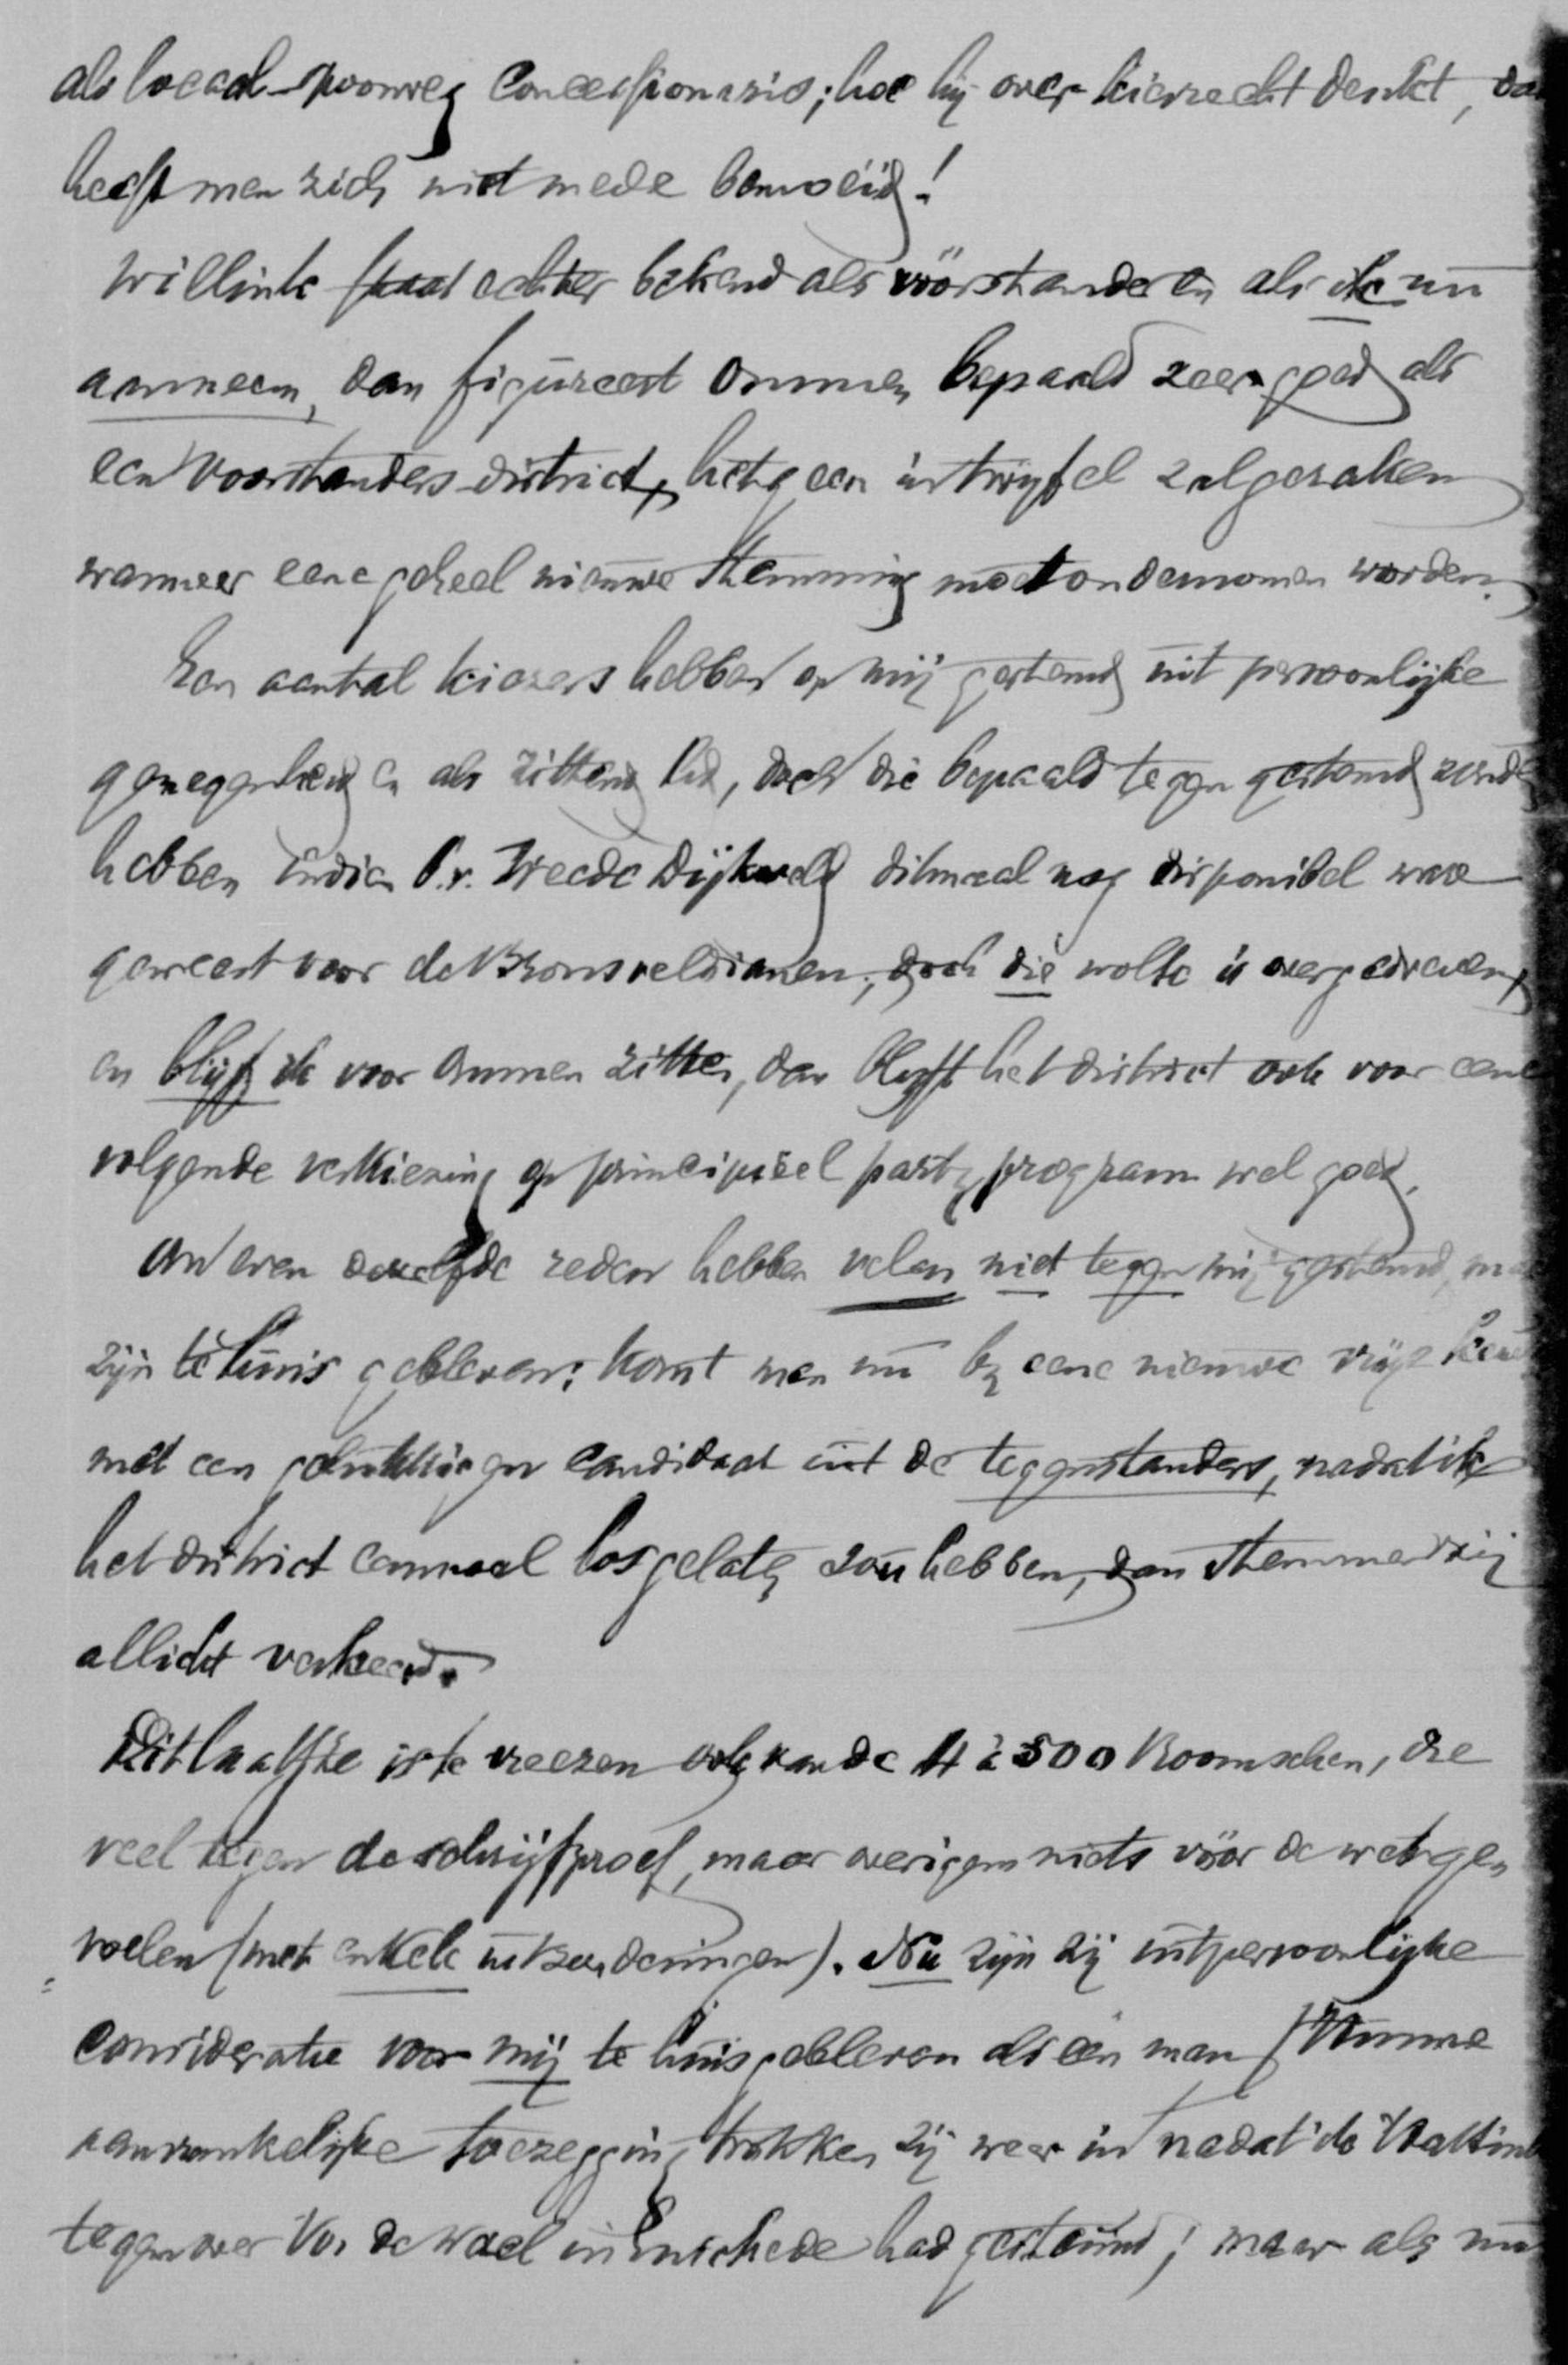 als locaal-spoorweg Concessionaris; hoe hij over kiesrecht denkt, daar
heeft men zich niet mede bemoeid!
Willink staat echter bekend als vóórstander en als ik nu
aanneem, dan figureert Ommen bepaald zeer goed als
een voorstanders-district, hetgeen in twijfel zal geraken
wanneer eene geheel nieuwe stemming moet ondernomen worden.
Een aantal kiezers hebben op mij gestemd uit persoonlijke
genegenheid en als zittend lid, doch die bepaald tegen gestemd zouden
hebben indien B.v. Weede Dijkveld ditmaal nog disponibel ware
geweest voor de Bronsveldianen; doch die wolk is overgedreven,
en blijf ik voor Ommen zitten, dan blijft het district ook voor eene
volgende verkiezing op principieel partij program wel goed.
Om even dezelfde reden hebben velen niet tegen mij gestemd, maar
zijn te huis gebleven; komt men nu bij eene nieuwe vrije keus
met een gelukkigen candidaat uit de tegenstanders, nadat ik
het district eenmaal losgelaten zou hebben, dan stemmen zij
allicht verkeerd.
Dit laatste is te vreezen ook van de 4 à 500 Roomschen, die
veel tegen de schrijfproef, maar overigens niets vóór de wet ge-
voelen (met enkele uitzonderingen). Nu zijn zij uit persoonlijke
consideratie voor mij te huis gebleven als één man (Hunne
aanvankelijke toezegging trokken zij weer in nadat ik Battink
tegenover Vos de Wael in Enschede had gesteund; maar als nu